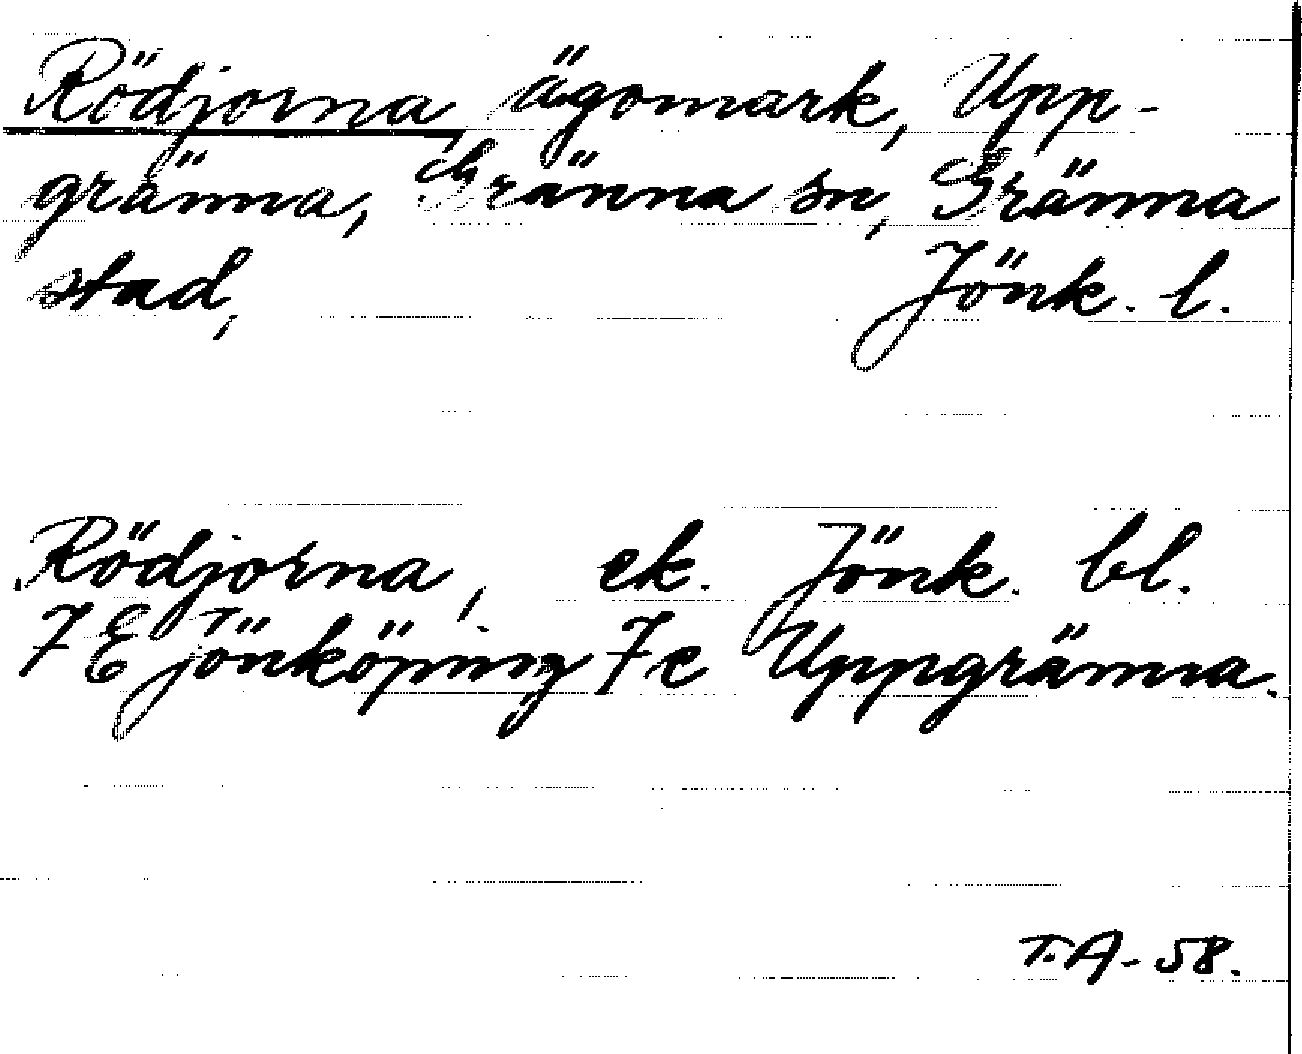 Rödjorna, ägomark, Upp-
gränna, Gränna sn, Gränna
stad, Jönk. l.
Rödjorna, ek. Jönk. bl.
7 E Jönköping 7 e Uppgränna.
T.A-58.